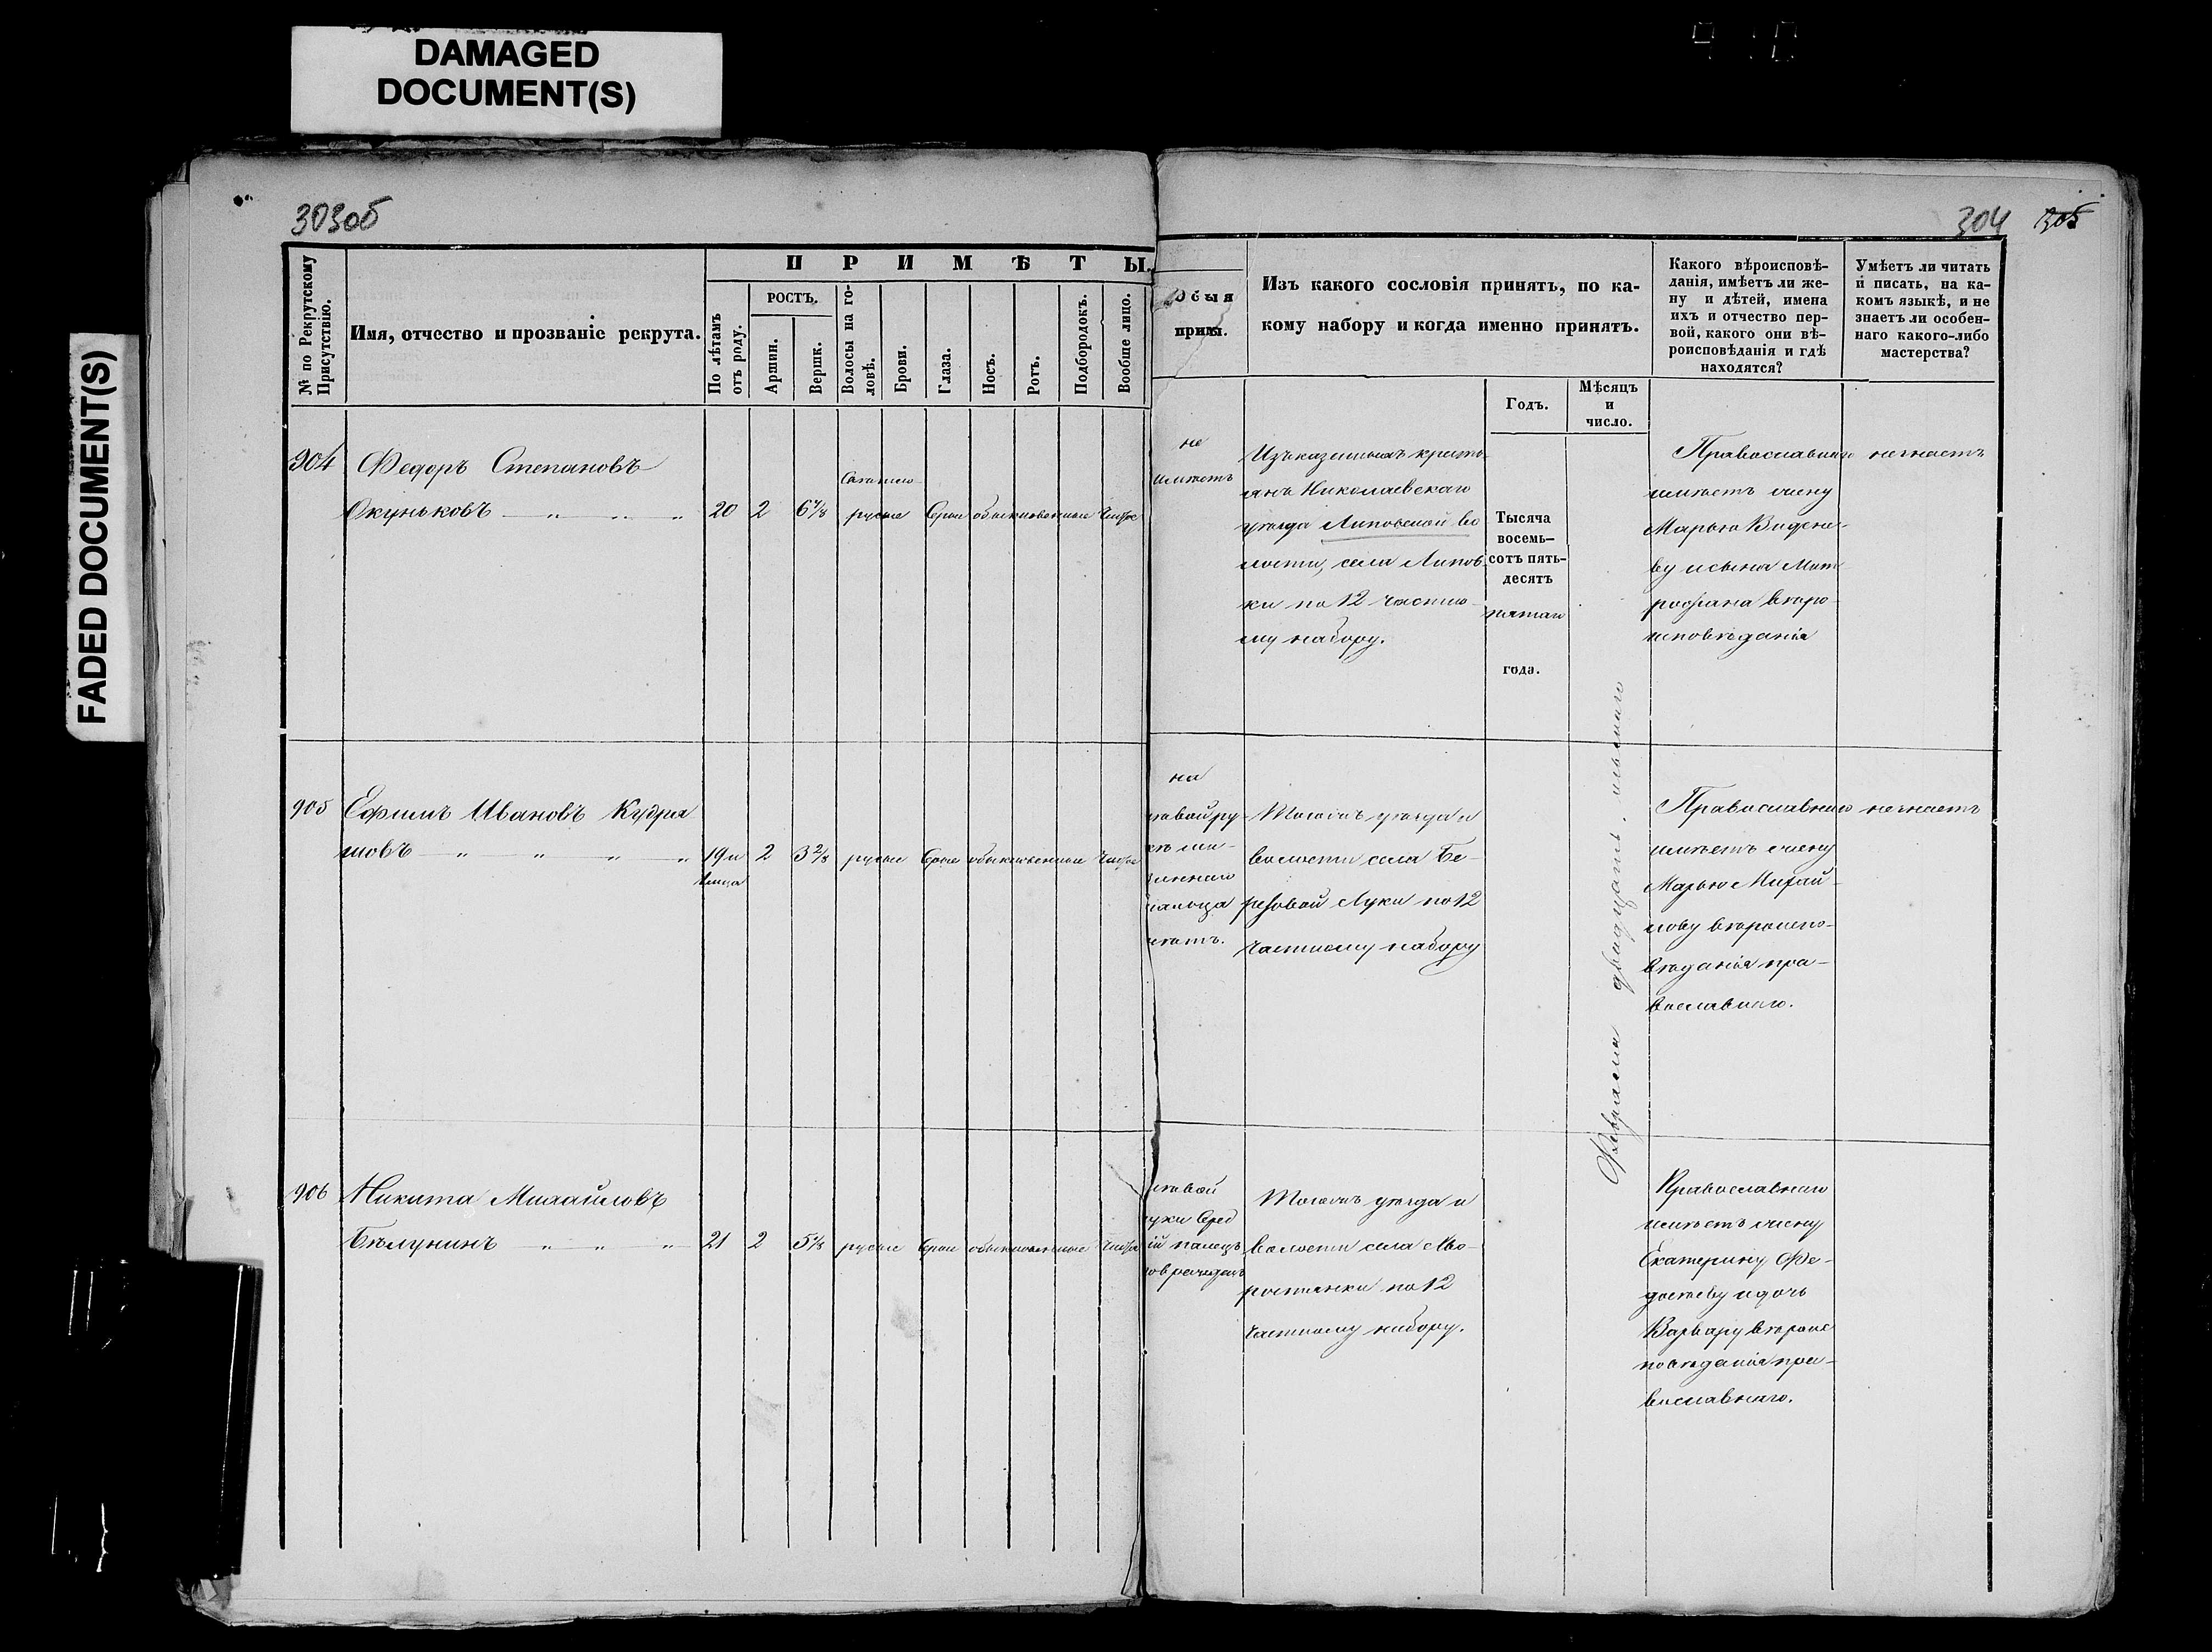 DAMAGED
DOCUMENT(S)
FADED DOCUMENT(S)
303об
304 305
№ по Рекрутскому
Присутствію.
Имя, отчество и прозваніе рекрута.
ПРИМѢТЫ.
По лѣтамъ
отъ роду.
РОСТЪ.
Аршин.
Вершк.
Волосы на го-
ловѣ.
Брови.
Глаза.
Носъ.
Ротъ.
Подбородокъ.
Вообще лицо.
Изъ какого сословія принятъ, по ка-
кому набору и когда именно принятъ.
Годъ.
Мѣсяцъ
и
число.
Какого вѣроисповѣ-
данія, имѣетъ ли же-
ну и дѣтей, имена
ихъ и отчество пер-
вой, какого они вѣ-
роисповѣданія и гдѣ
находятся?
Умѣетъ ли читать
и писать, на ка-
комъ языкѣ, и не
знаетъ ли особен-
наго какого-либо
мастерства?
904
Федоръ Степановъ
Окуньковъ
20 2 6⅞
русые
Серые обыкновенные Чистое
не
имѣетъ
Изъ казенныхъ кресть-
янъ Николаевскаго
уѣзда Липовской во
лости, села Липов
ки по 12 частно-
му набору.
Тысяча
восемь-
сотъ пять-
десятъ
пятаго
года.
Православнаго
имѣетъ жену
Марью
ву и сына Мит
рофана вѣро-
исповѣданія
не знаетъ
905
Ефимъ Ивановъ Кудря
шовъ
19 и
2 3⅔ русые Серые обыкновенные Чистое
на
Тогожъ уѣзда и
волости села Бе-
резовой Луки по 12
частному набору
Февраля двадцать
Православнаго
имѣетъ жену
Марью Михай-
лову вѣроиспо-
вѣданія пра-
вославнаго.
не знаетъ
906
Никита Михайловъ
Бѣлунинъ
21 2 5⅛ русые Серые обыкновенные Чистое
Тогожъ уѣзда и
волости села Мо-
ростянки по 12
частному набору.
Православнаго
имѣетъ жену
Екатерину Фе-
дотову и дочь
Варвару вѣроис
повѣданія пра-
вославнаго.